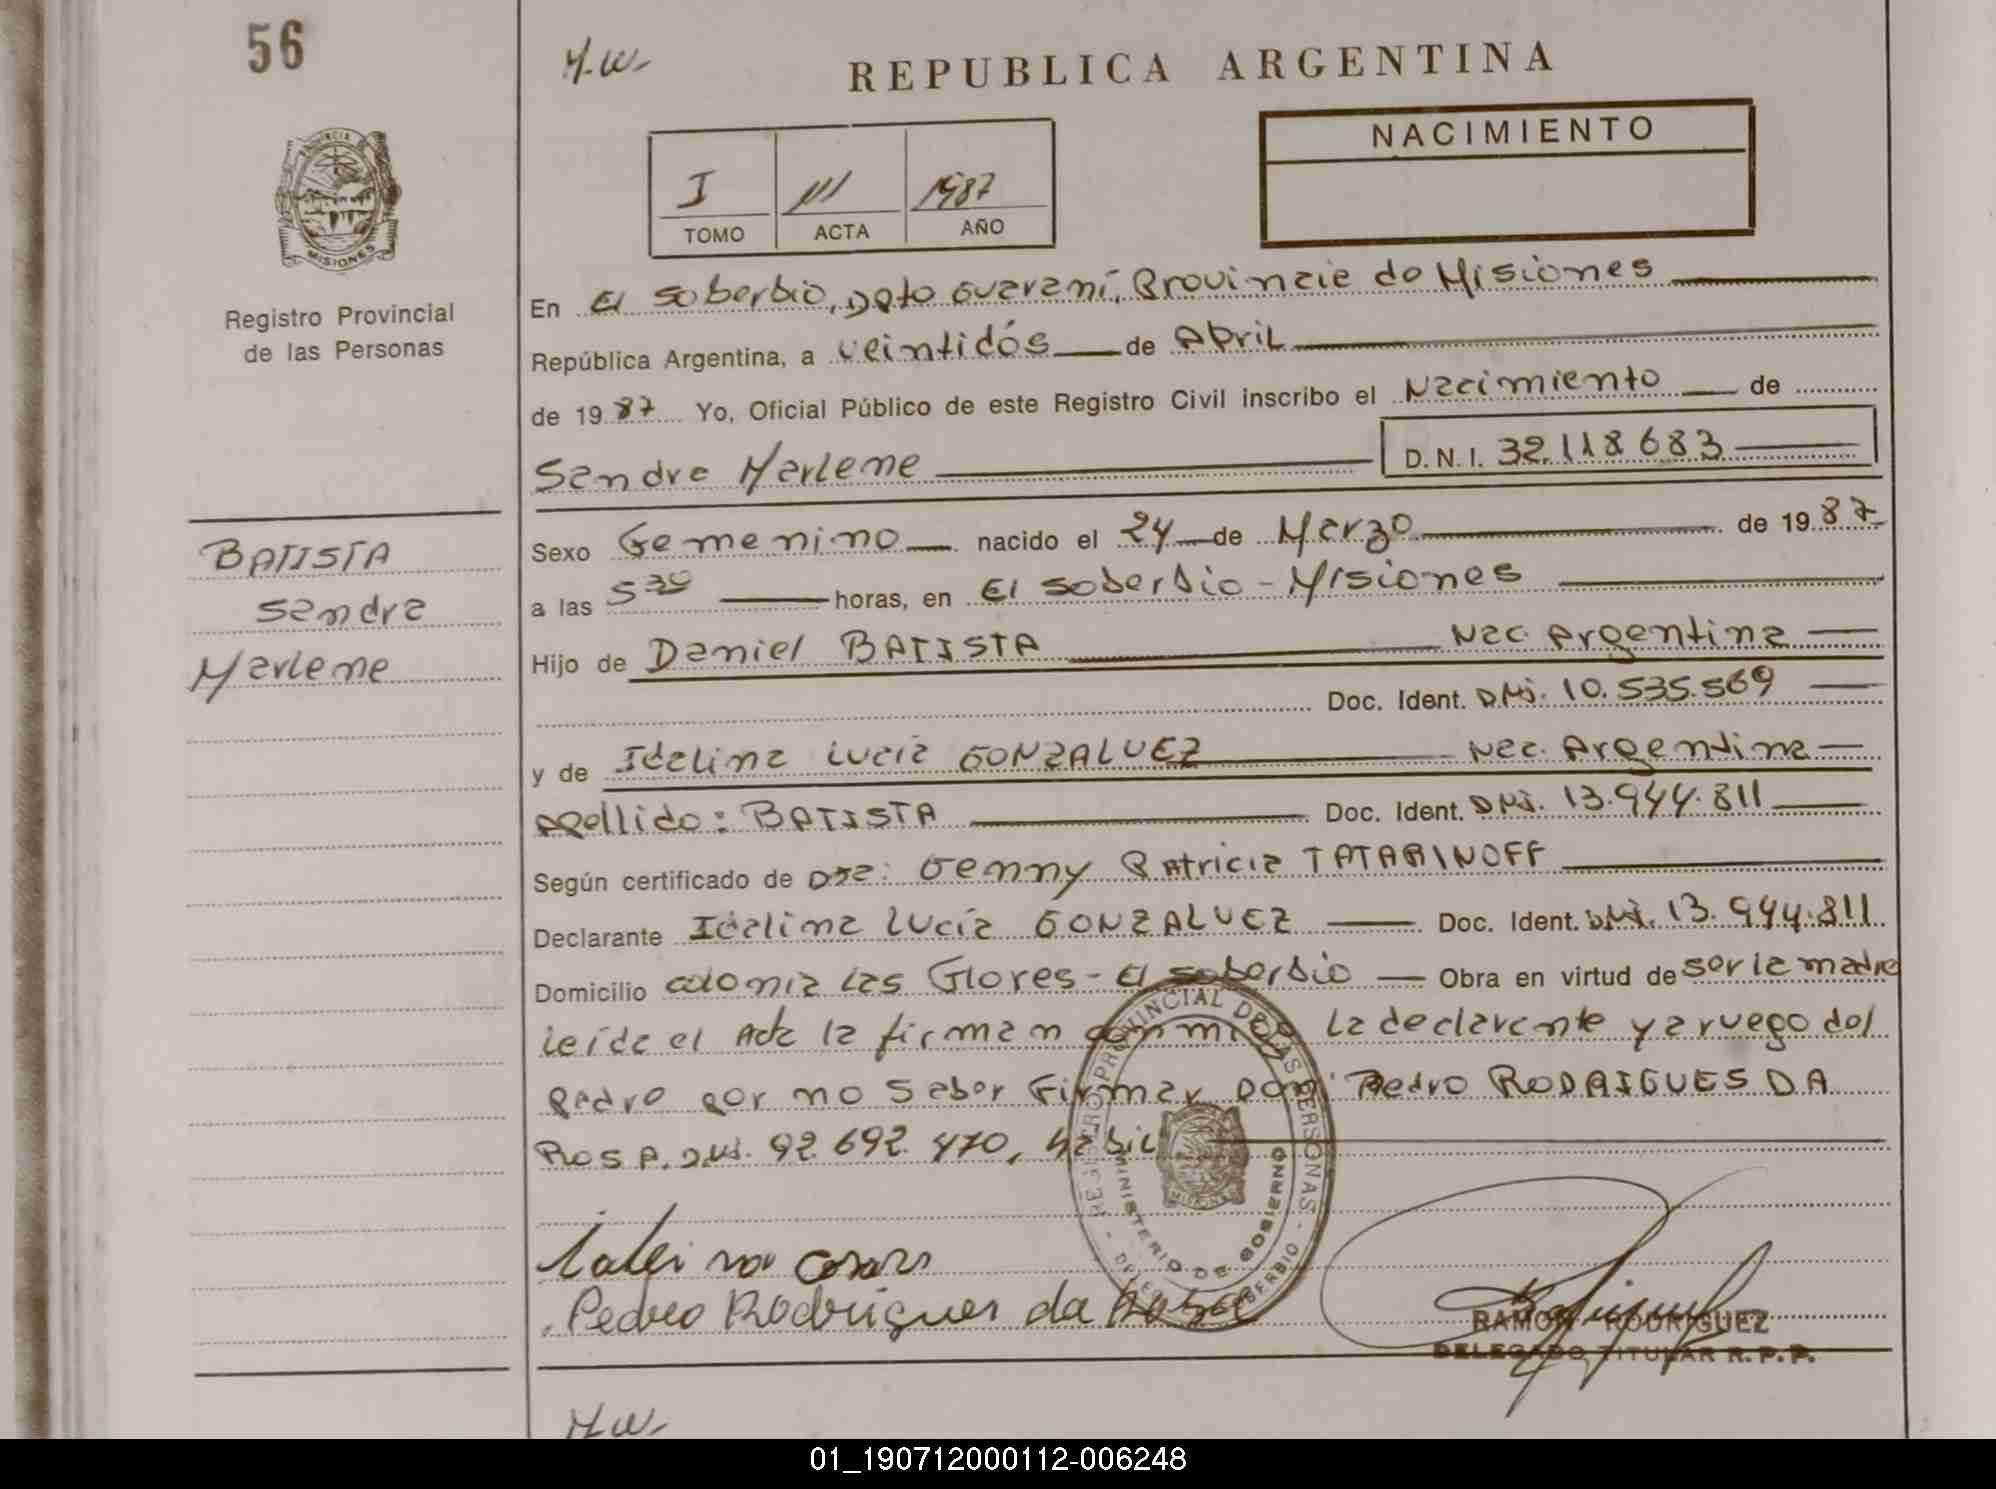 56
H.W.
REPUBLICA ARGENTINA
NACIMIENTO
I 111 1987
TOMO ACTA AÑO
PROVINCIA DE
MISIONES
Registro Provincial
de las Personas
En El Soberbio, Dpto Guaraní, Provincia de Misiones
República Argentina, a veintidós de Abril
de 19 87 Yo, Oficial Público de este Registro Civil inscribo el Nacimiento de
Sandra Marlene D.N.I. 32.118.683
BATISTA
Sandra
Marlene
Sexo Femenino nacido el 24 de Marzo de 19 87
a las 5 30 horas, en El Soberbio - Misiones
Hijo de Daniel BATISTA Nac. Argentina
Doc. Ident. DNI. 10.535.569
y de Idalina Lucía GONZALVEZ Nac. Argentina
Apellido: BATISTA Doc. Ident. DNI. 13.944.811
Según certificado de Dra: Genny Patricia TATARINOFF
Declarante Idalina Lucía GONZALVEZ Doc. Ident. DNI. 13.944.811
Domicilio colonia Las Flores - El Soberbio Obra en virtud de ser la madre
leída el Acta la firman conmigo la declarante y a ruego del
Padre por no saber Firmar Don Pedro RODRIGUES DA
ROSA. DNI. 92.692.470, hábil
REGISTRO PROVINCIAL DE LAS PERSONAS
MINISTERIO DE GOBIERNO
MISIONES
Pedro Rodrigues da Rosa
RAMON RODRIGUEZ
DELEGADO TITULAR R.P.P.
H.W.
01_190712000112-006248